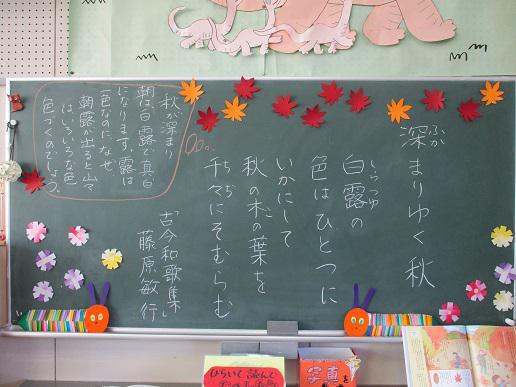 深まりゆく秋
ふか
白露の
しらつゆ
色はひとつに
いかにして
秋の木の葉を
こ
千々にそむらむ
ちぢ
「古今和歌集」
藤原敏行
秋が深まり
朝は白露で真白
になります。露は
一色なのに、なぜ
朝露が出ると山々
はいろいろな色
色づくのでしょう。
ひらいて読んで
写真を